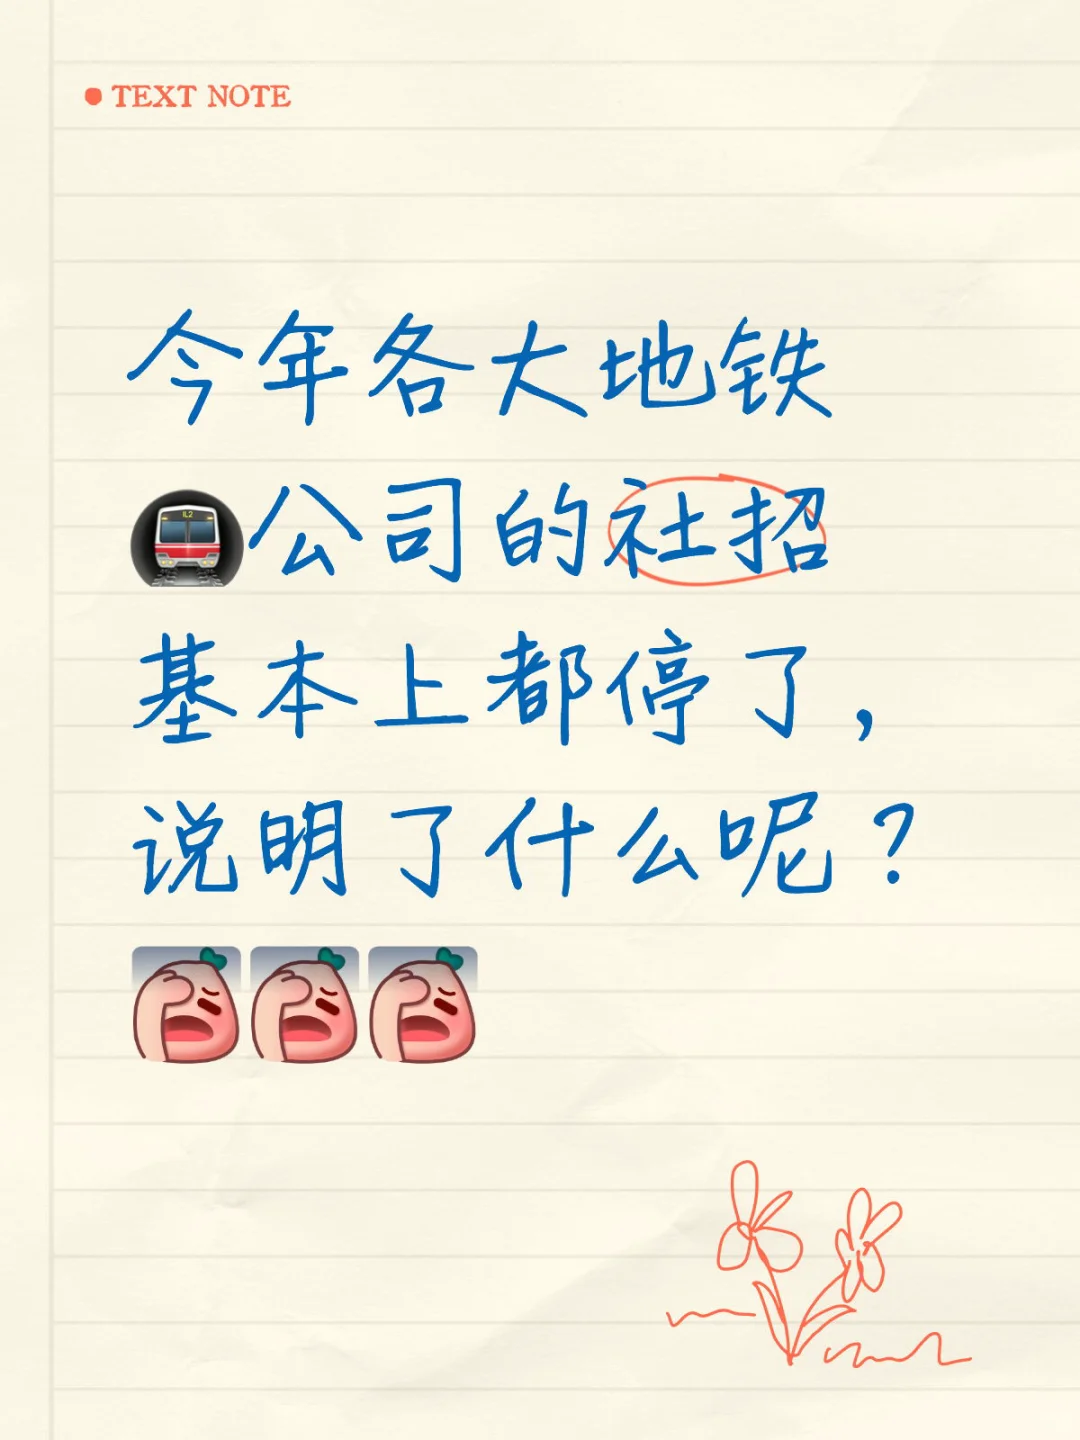 TEXT NOTE
今年各大地铁
🚇公司的社招
基本上都停了，
说明了什么呢？